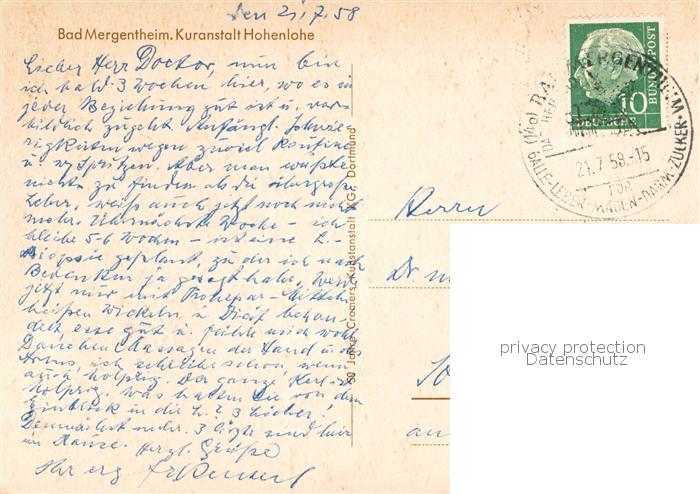 den 21.7.58
Bad Mergentheim. Kuranstalt Hohenlohe
Lieber Herr Doctor, nun bin
ich bald 3 Wochen hier, wo es in
jeder Beziehung gut ist u. vor-
bildlich zugeht. Anfängl. Schwie-
rigkeiten wegen zuviel
u. Spritzen. Aber man wußte
nichts zu finden als die übergroße
Leber, weiß auch jetzt noch nicht
mehr. Übernächste Woche - ich
bleibe 5-6 Wochen - ist eine L.-
Biopsie geplant, zu der ich nach
Bedenken ja gesagt habe. Werde
jetzt nur mit
heißen Wickeln u. Diät behan-
delt esse gut u. fühle mich wohl
Daneben Massagen der Hand u. des
Arms, ich schreibe schon, wenn
auch holprig. Der ganze Kerl ist
holprig. Was halten Sie von dem
Einblick in die L.? 3 Löcher!
Demnächst mehr. 3 Ärzte sind hier
im Hause. Herzl. Grüße
Ihr erg.
50 Jahre Cramers Kunstanstalt KG. Dortmund
10
DEUTSCHE
BUNDESPOST
(14a) BAD MERGENTHEIM
21.7.58.-15
FÜR
GALLE-LEBER-MAGEN-DARM-ZUCKER
Herrn
Dr. m
an
privacy protection
Datenschutz